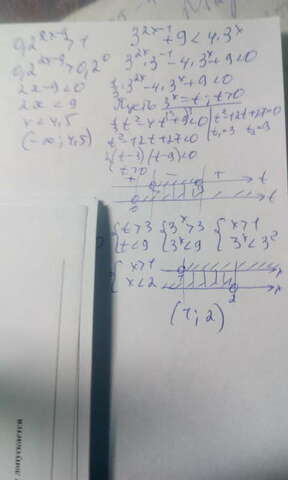 0,2^{2x-9} > 1
0,2^{2x-9} > 0,2^0
2x-9<0
2x<9
x<4,5
(-∞; 4,5)
3^{2x-1}+9<4·3^x
3^{2x}·3^{-1}-4·3^x+9<0
⅓·3^{2x}-4·3^x+9<0
Пусть 3^x=t; t>0
⅓t²-4t+9<0 | t²-12t+27=0
t²-12t+27<0 | t₁=3 t₂=9
{(t-3)(t-9)<0
{t>0
+ - + t
0 t
{t>3 {3^x>3 {x>1
{t<9 {3^x<9 {3^x<3²
{x>1 1 x
{x<2 2 x
(1; 2)
допускается